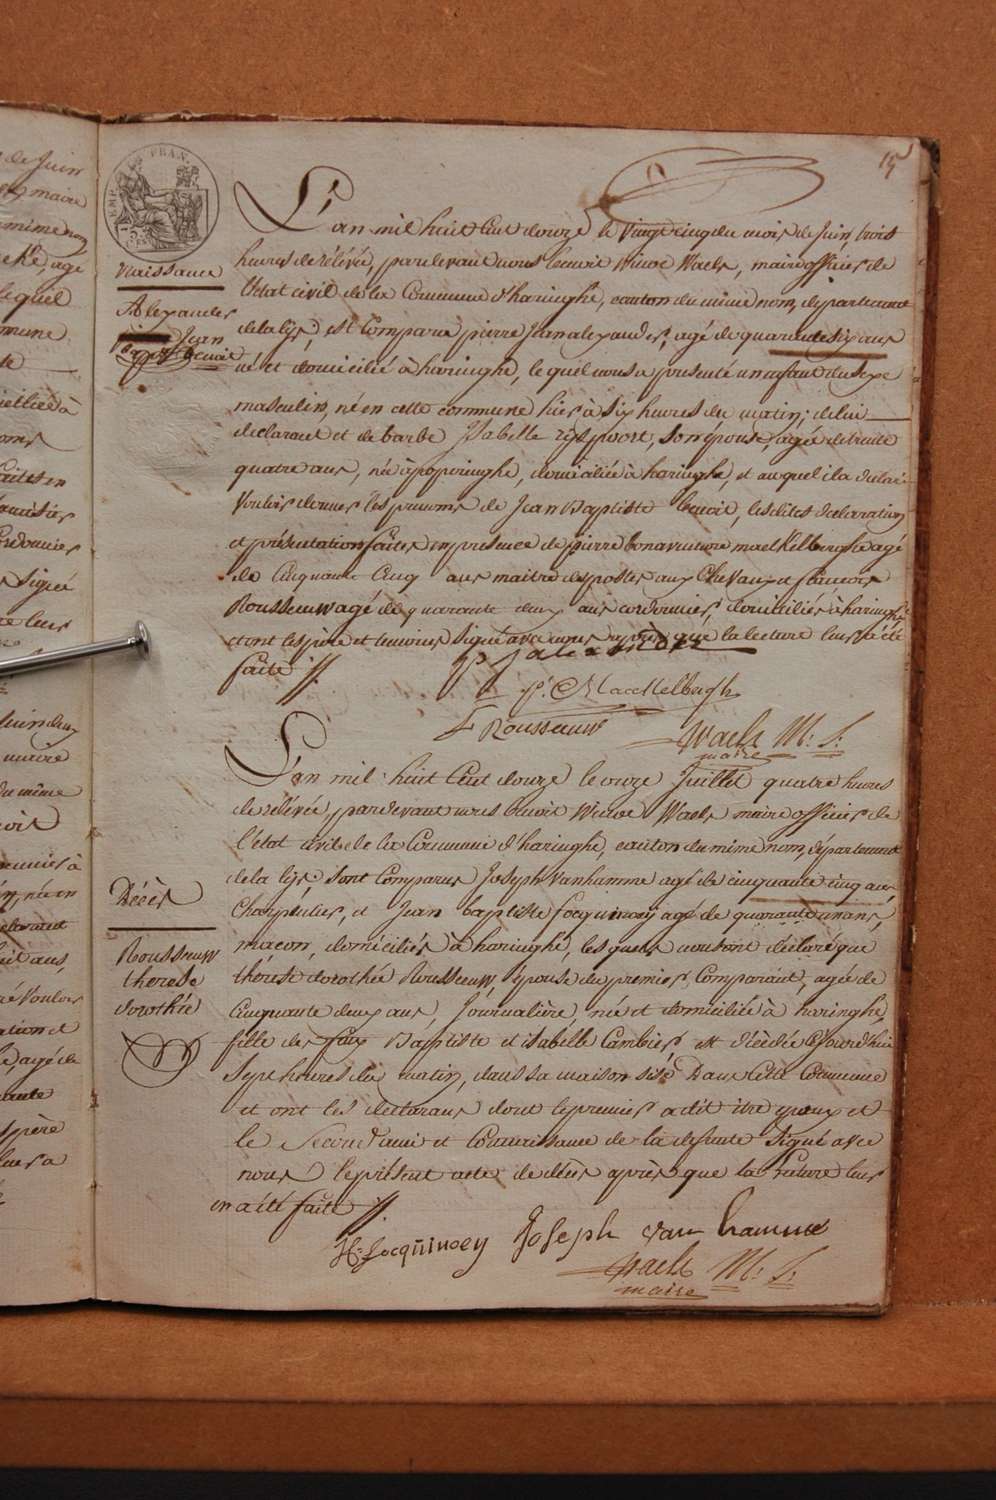 15
EMP. FRAN.
Naissance
Alexander
Jean
Baptiste Benoit
L'an mil huit Cent douze le vingt cinq du mois de Juin, trois
heures de rélévée, pardevant nous benoit Winoc Waels, maire officier de
l'état civil de la Commune d'haringhe, canton du même nom, département
de la lijs, est Comparu pierre Jean alexander, agé de quarante six ans
né et domicilié à haringhe, lequel nous a présenté un enfant du sexe
masculin, né en cette commune hier à six heures du matin; de lui
déclarant et de barbe Isabelle ryspoort, son épouse, agée de trente
quatre ans, née à poperinghe, domiciliée à haringhe, et auquel il a déclaré
vouloir donner les prenoms de Jean Baptiste benoit, lesdites déclaration
et présentation faites en présence de pierre bonaventure maelkelberghe agé
de Cinquante Cinq ans maitre des postes aux Chevaux et francois
Rousseuw agé de quarante deux ans cordonnier, domiciliés à haringhe
et ont les père et temoins signé avec nous après que la lecture leur a été
faite //.
P J alexander
P. Maelkelbergh
F Rousseuw
Waels M: S:
maire
L'an mil huit Cent douze le onze Juillet quatre heures
de rélévée, pardevant nous benoit Winoc Waels maire officier de
l'état civil de la Commune d'haringhe, canton du même nom, département
de la lijs, sont Comparus Joseph Vanhamme agé de cinquante cinq ans
Décès
Charpentier, et Jean baptiste Jocquincoy agé de quarante un ans,
Rousseuw
therese
dorothée
maçon, domiciliés à haringhe, lesquels nous ont déclaré que
thérèse dorothée Rousseuw, épouse du premier Comparant, agée de
Cinquante deux ans, Journalière, née et domiciliée à haringhe,
fille des feux Baptiste et isabelle Cambier, est décédée cejourd'hui
Sept heures du matin, dans sa maison sise Dans cette Commune
et ont les déclarans dont le premier a dit être epoux et
le Second ami et Connaissance de la defunte signé avec
nous le présent acte de décès après que la lecture leur
en a été faite //.
H: Jocquincoy Joseph van hamme
Waels M: S:
maire